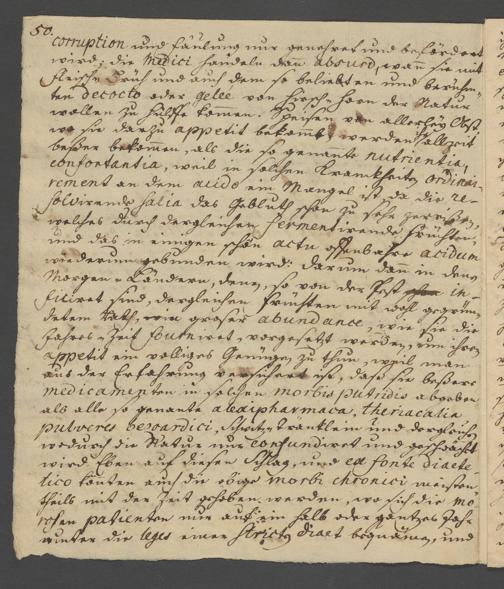 50.
corruption und fäulung nur genehret und befördert
wird; die Medici handeln dan absurd, wan sie mit
fleisch Brüh und auch dem so beliebten und berühm-
ten decocto oder gilée von Hirsch-horn der Natur
wollen zu hülffe komen. Speisen von allerhey Obst
wo sie darzu appetit bekomt werden allzeit
beßer bekomen, als die so genante nutrientia,
confortantia, weil in solchen Kranckheiten ordinai-
rement an dem acido ein Mangel ist, da die re-
solvirende salia das Geblüth schon zu sehr
welches durch dergleichen fermentirende früchten,
und das in einigen schon actu offenbahre acidum
wiederum gebunden wird; darum dan in denen
Morgen-Ländern, denen, so von der Pest in-
ficiret sind, dergleichen früchten mit wohl gegrün-
detem Rath, in groser abundance, wie sie die
Jahres-Zeit fourniret, vorgesetzt werden, um ihrem
appetit ein völliges Genügen zu thun, weil man
aus der Erfahrung versichert ist, daß sie beßere
medicamenten in solchen morbis putridis abgeben
als alle so genante alexipharmaca, theriacalia
pulveres bezoardici, Schwitz-tränklein und dergleichen
wodurch die Natur nur confundiret und geschwächt
wird. Eben auf diesen Schlag, und ex fonte diaete
tico könten auch die übige morbi chronici meisten-
theils mit der Zeit gehoben werden, wo sich die mo-
rosen patienten nur auf ein halb oder gantzes Jahr
unter die leges einer strictn diaet beqvämen, und